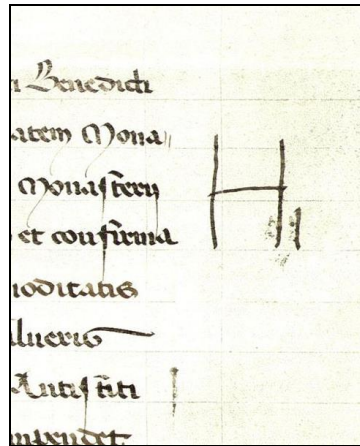 i Benedicti
atem Mona
Monasterii H
et confirma
ioditatis
lueris
Antistiti